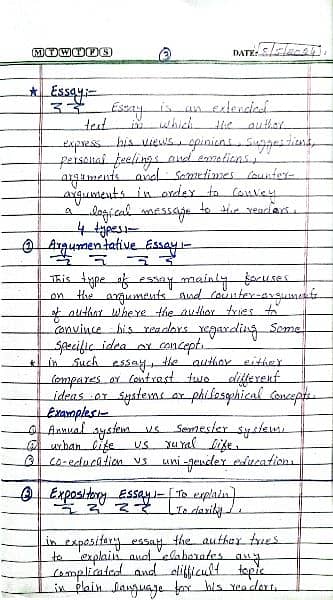 M T W T F S
3
DATE: 5/5/2024
★ Essay:-
Essay is an extended
text in which the author
express his views, opinions, suggestions,
personal feelings and emotions,
arguments and sometimes counter-
arguments in order to convey
a logical message to the readers.
4 types:-
① Argumentative Essay:-
This type of essay mainly focuses
on the arguments and counter-arguments
of author where the author tries to
convince his readers regarding some
specific idea or concept.
* in such essay, the author either
compares or contrast two different
ideas or systems or philosophical concepts.
Examples:-
① Annual system vs semester system.
② urban life vs rural life.
③ co-education vs uni-gender education.
② Expository Essay:- [To explain]
[To clarify]
in expository essay the author tries
to explain and elaborates any
complicated and difficult topic
in plain language for his readers.